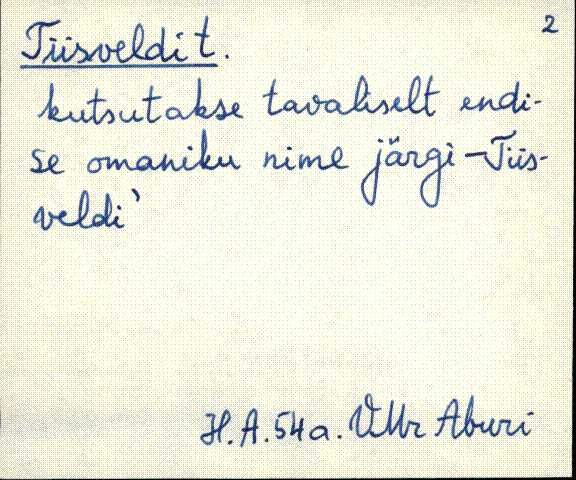 2
Tiisveldi t.
kutsutakse tavaliselt endi-
se omaniku nime järgi – Tiis-
veldi`
H.A. 54a. VMr Aburi